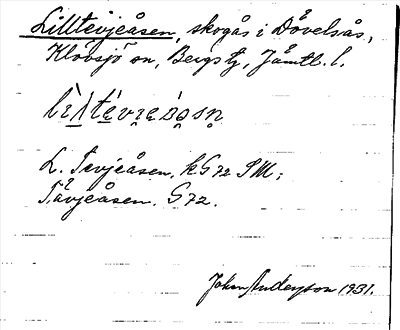 Lilltevjeåsen, skogås i Dåvelsås,
Klövsjö sn, Bergs tg, Jämtl. l.
L. Tevjeåsen, kG72 SM;
Tävjeåsen. G72.
Johan Anderson 1931.